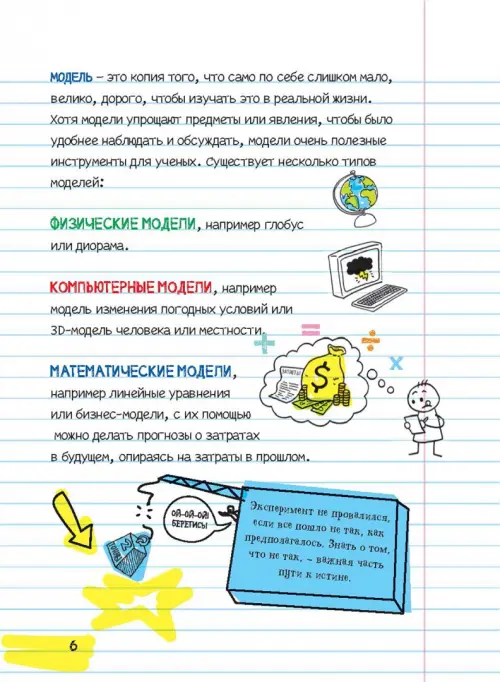 МОДЕЛЬ – это копия того, что само по себе слишком мало,
велико, дорого, чтобы изучать это в реальной жизни.
Хотя модели упрощают предметы или явления, чтобы было
удобнее наблюдать и обсуждать, модели очень полезные
инструменты для ученых. Существует несколько типов
моделей:
ФИЗИЧЕСКИЕ МОДЕЛИ, например глобус
или диорама.
КОМПЬЮТЕРНЫЕ МОДЕЛИ, например
модель изменения погодных условий или
3D-модель человека или местности.
МАТЕМАТИЧЕСКИЕ МОДЕЛИ,
например линейные уравнения
или бизнес-модели, с их помощью
можно делать прогнозы о затратах
в будущем, опираясь на затраты в прошлом.
+ = ÷ x
ЗАТРАТЫ
$
ОЙ-ОЙ-ОЙ!
БЕРЕГИСЬ!
Эксперимент не провалился,
если все пошло не так, как
предполагалось. Знать о том,
что не так, – важная часть
пути к истине.
6